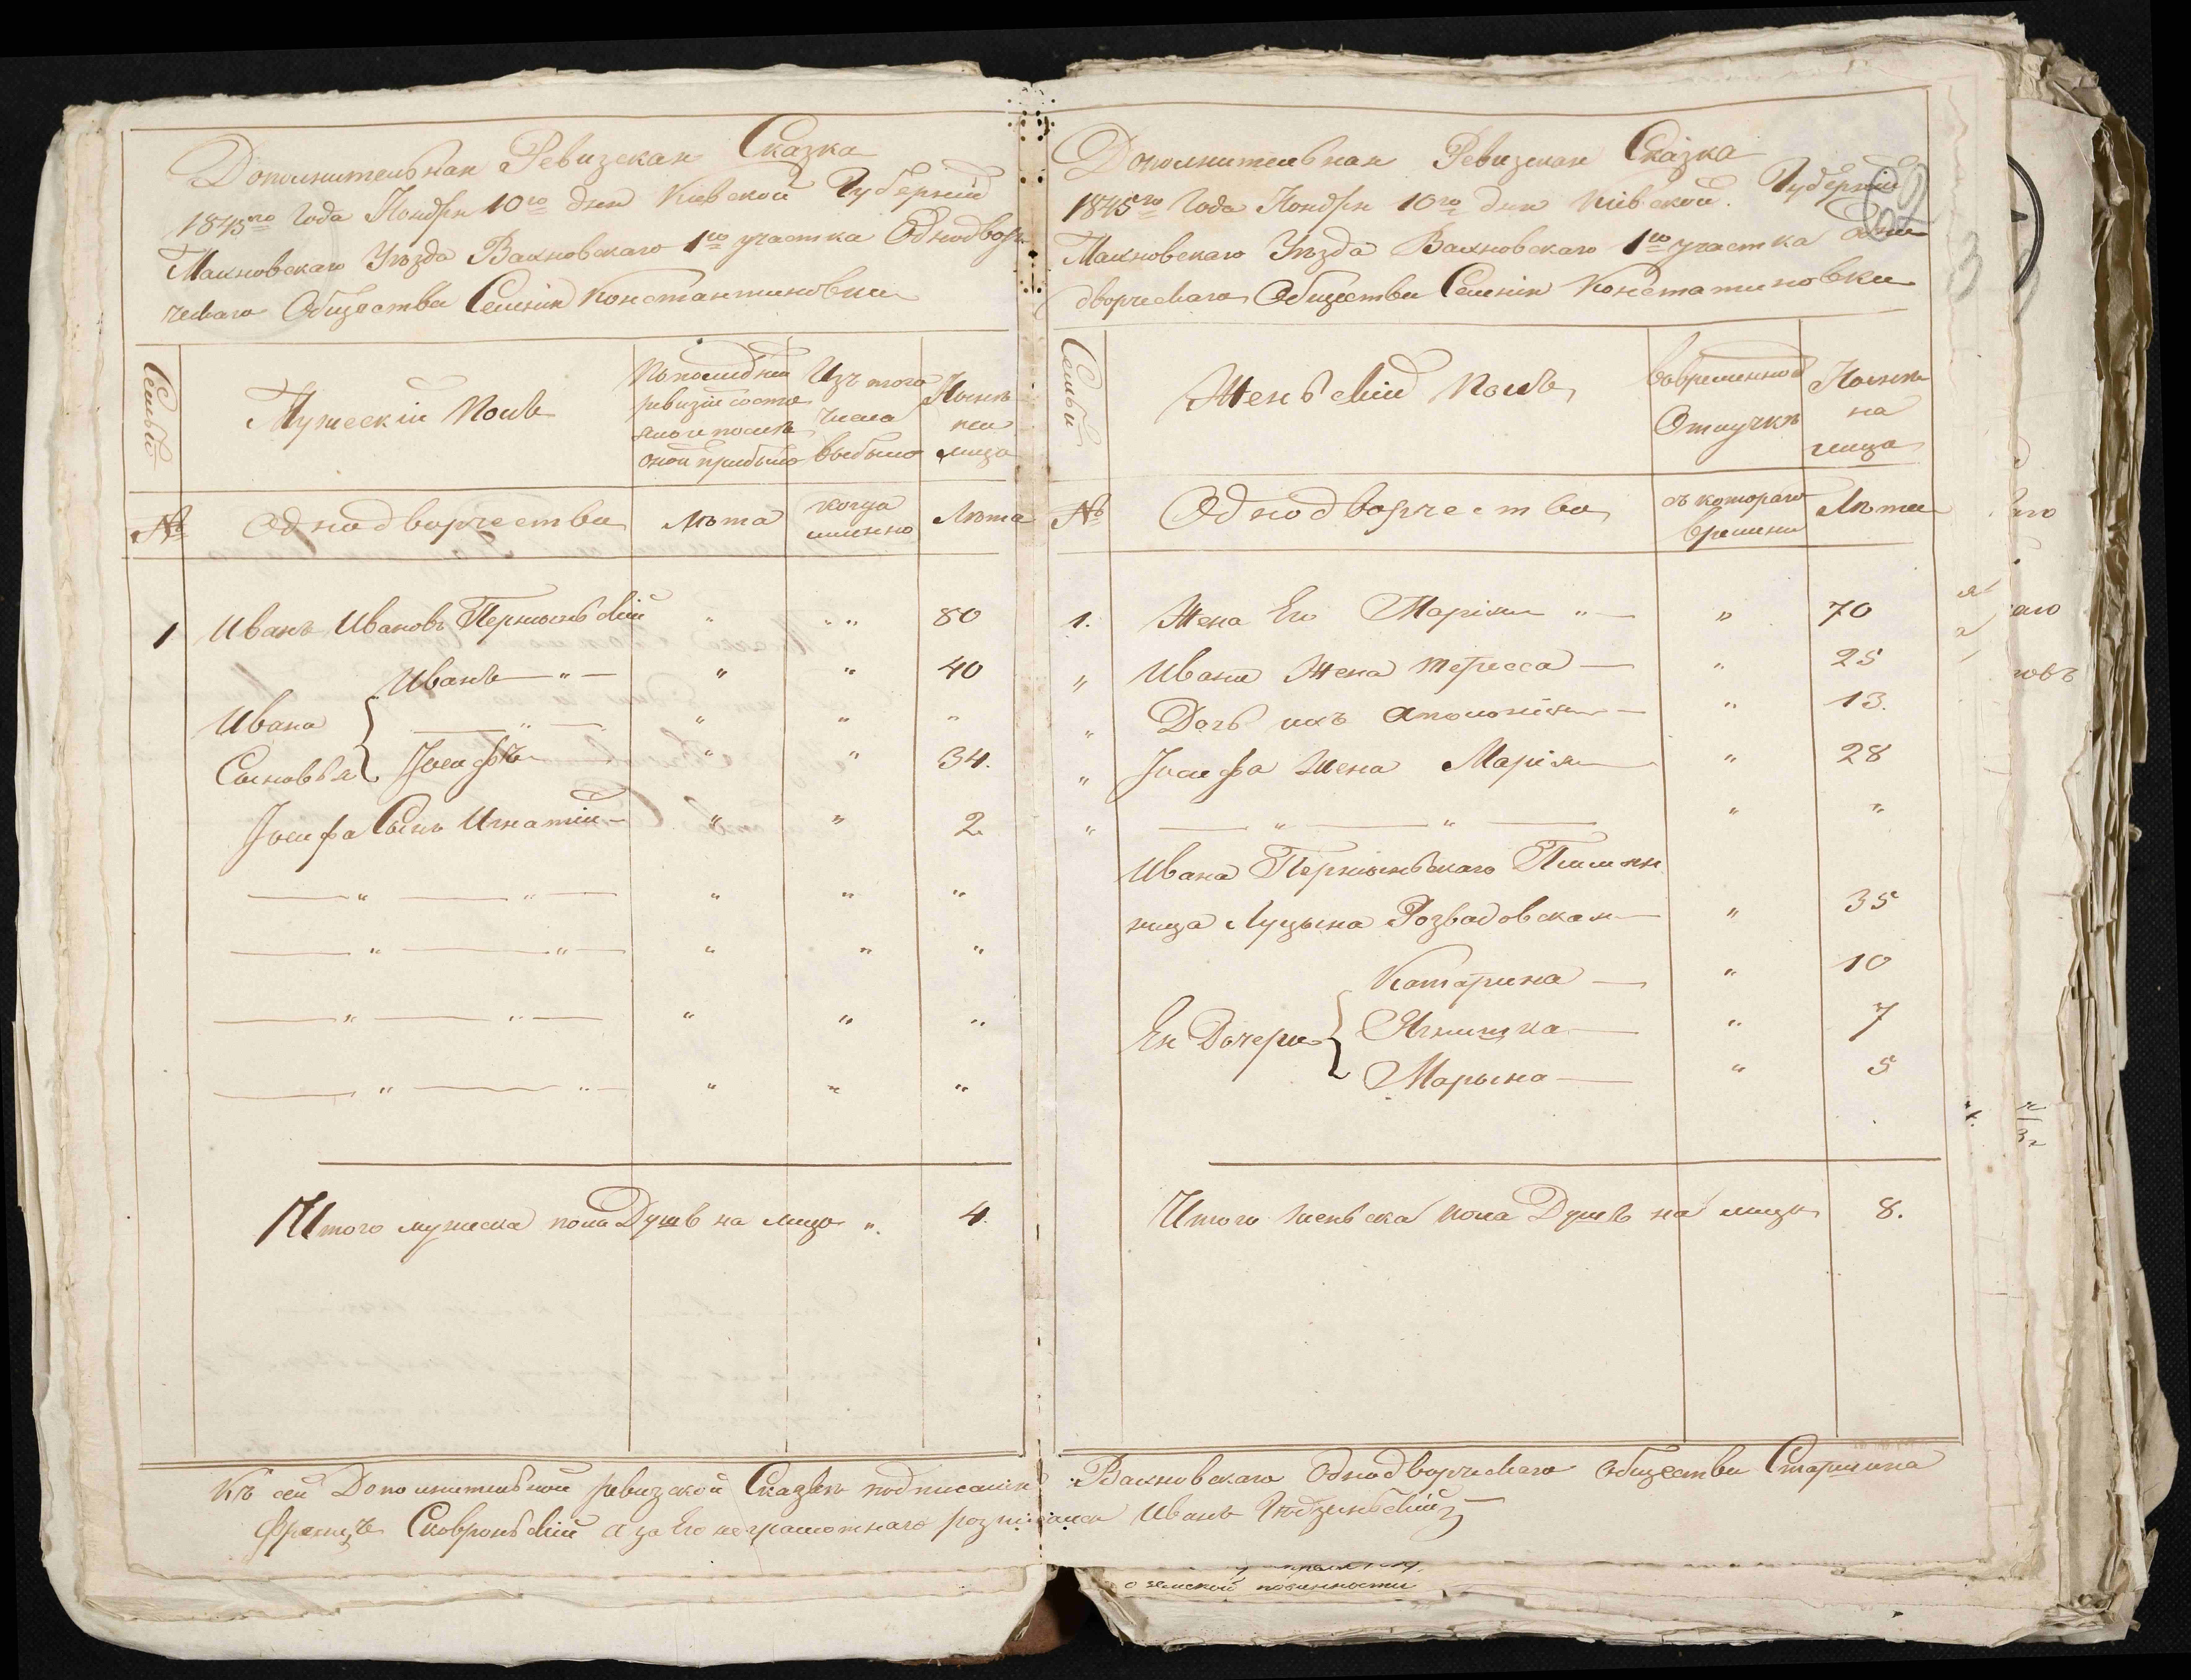 Дополнительная Ревизская Сказка
1845го Года Ноября 10го дня Киевской Губерніи
Махновскаго Уѣзда Вахновскаго 1го участка Однодвор
ческаго Общества Селенія Константиновки
Семьи
Мужескій Полъ
По последней ревизіи состо яло и послѣ оной прибыло
Изъ того числа выбыло
Нынѣ на лицо
№
Однодворчества
Лѣта
когда именно
Лѣта
1 Иванъ Ивановъ " " " 80
Иванъ — " — " " 40
Ивана — " — " " "
Сыновья Іосифъ " " 34.
Іосифа Сынъ Игнатій — " " 2.
— " — " — " " "
— " — " — " " "
— " — " — " " "
— " — " — " " "
Итого мужеска пола Душъ на лицо " 4.
Дополнительная Ревизская Сказка
1845го Года Ноября 10го дня Кіевской Губерніи
Махновскаго Уѣзда Вахновскаго 1го участка Одно
дворческаго Общества Селенія Констатиновки
Семьи
Женьскій Полъ
Во временной Отлучкѣ
Нынѣ на лицо
№
Однодворчества
съ котораго времени
Лѣта
1. Жена Его Маріяна " — " 70
" Ивана Жена Тересса — " 25
" Дочь ихъ Аполонія — " 13.
" Іосифа Жена Марія — " 28
" — " — " — " "
Ивана Племян
ница Луцына Розвадовская — " 35
Катарина — " 10
Ея Дочери Ягнишка — " 7
Марына — " 5
Итого женьска пола Душъ на лицо 8.
Къ сей Дополнительной ревизской Сказкѣ подписался Вахновскаго Однодворческаго общества Старшина
Францъ Сковроньскій а за Его неграмотнаго розписался Иванъ
о земской повинности